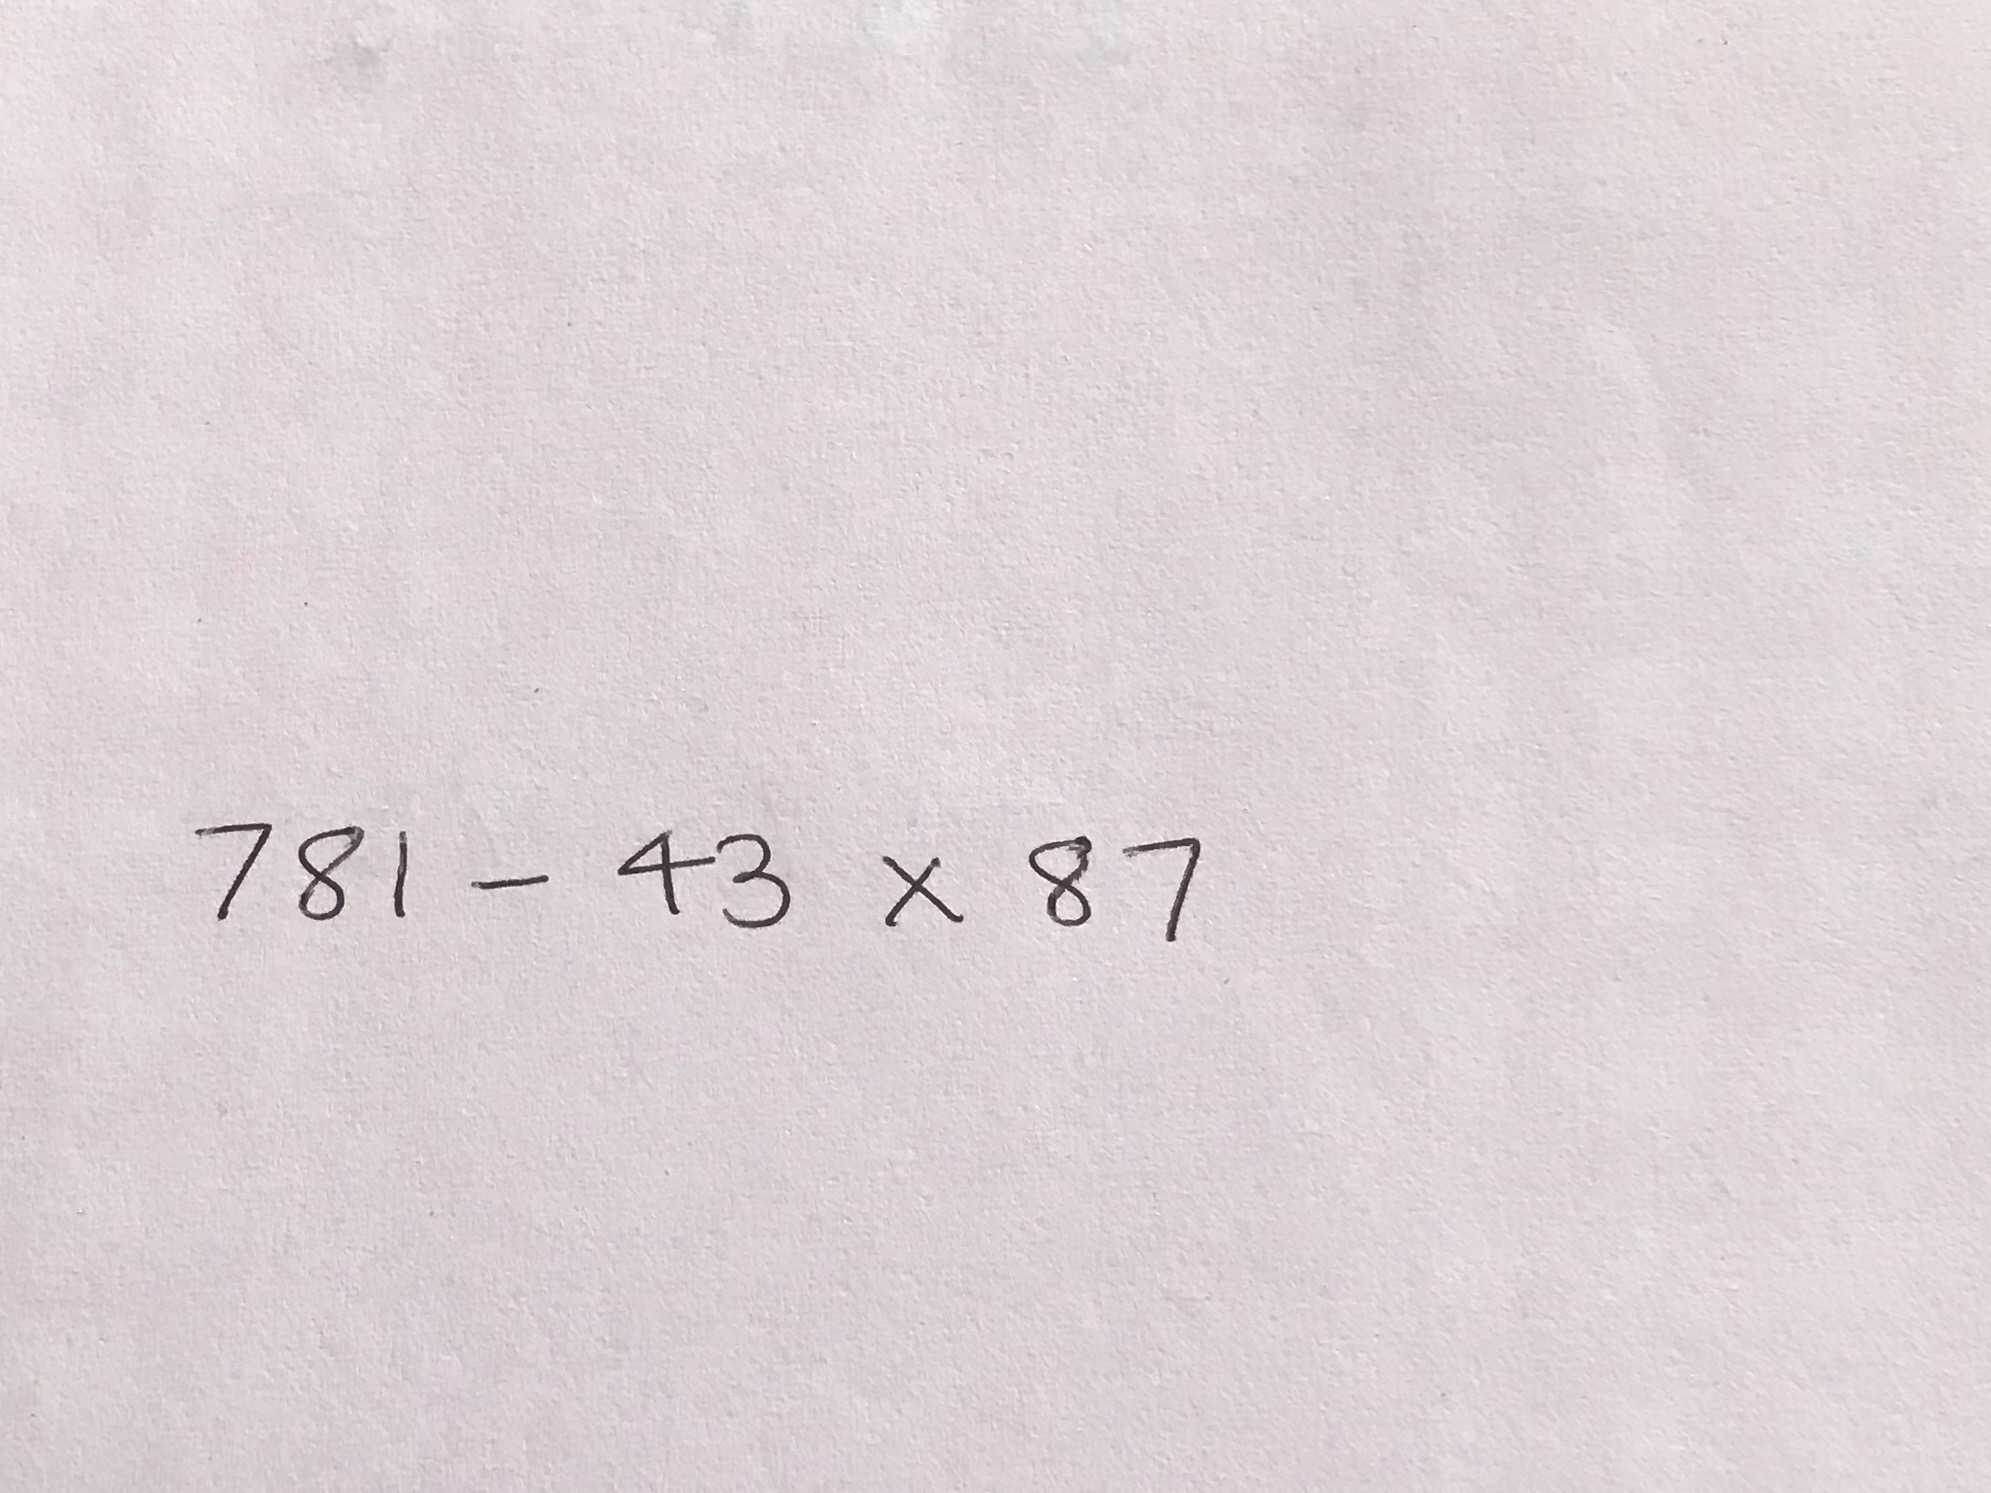 781 - 43 x 87